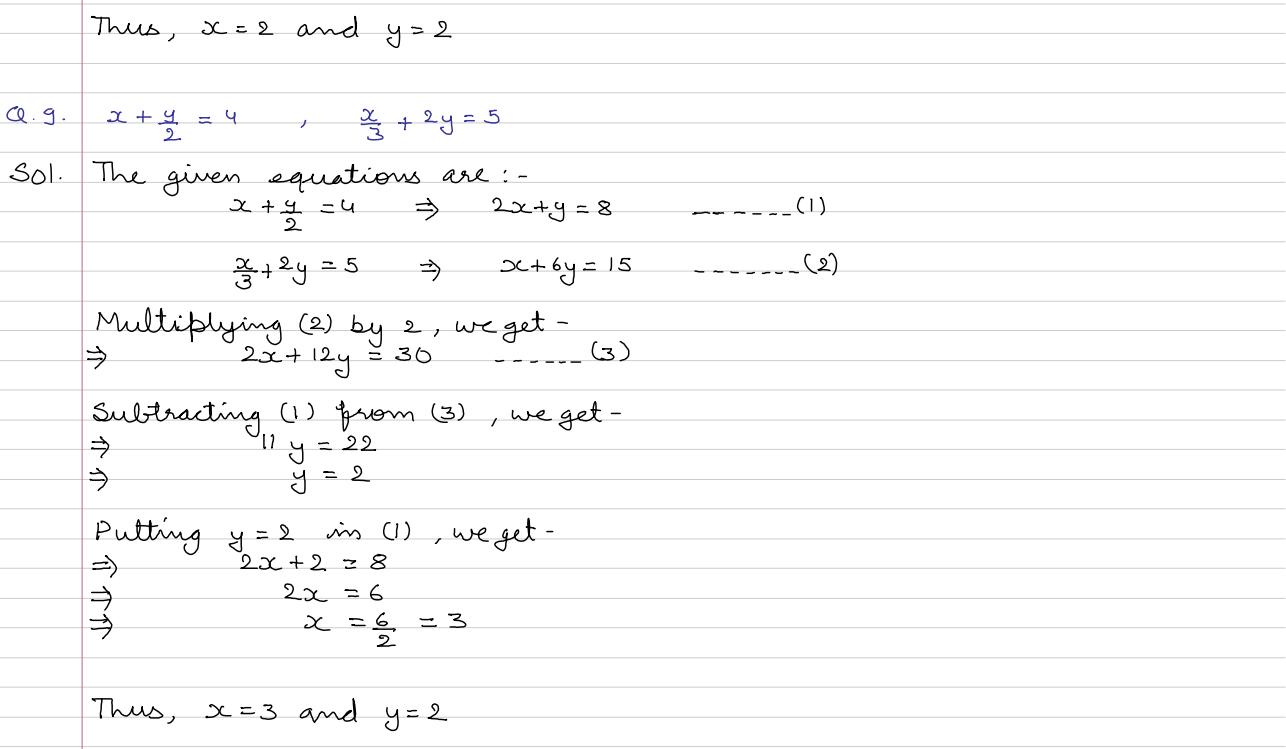 Thus, x = 2 and y = 2
Q.9. x + y/2 = 4 , x/3 + 2y = 5
Sol. The given equations are :-
x + y/2 = 4 ⇒ 2x+y = 8 -------(1)
x/3 + 2y = 5 ⇒ x+6y = 15 -------(2)
Multiplying (2) by 2, we get -
⇒ 2x + 12y = 30 ------(3)
Subtracting (1) from (3), we get -
⇒ 11y = 22
⇒ y = 2
Putting y = 2 in (1), we get -
⇒ 2x + 2 = 8
⇒ 2x = 6
⇒ x = 6/2 = 3
Thus, x = 3 and y = 2